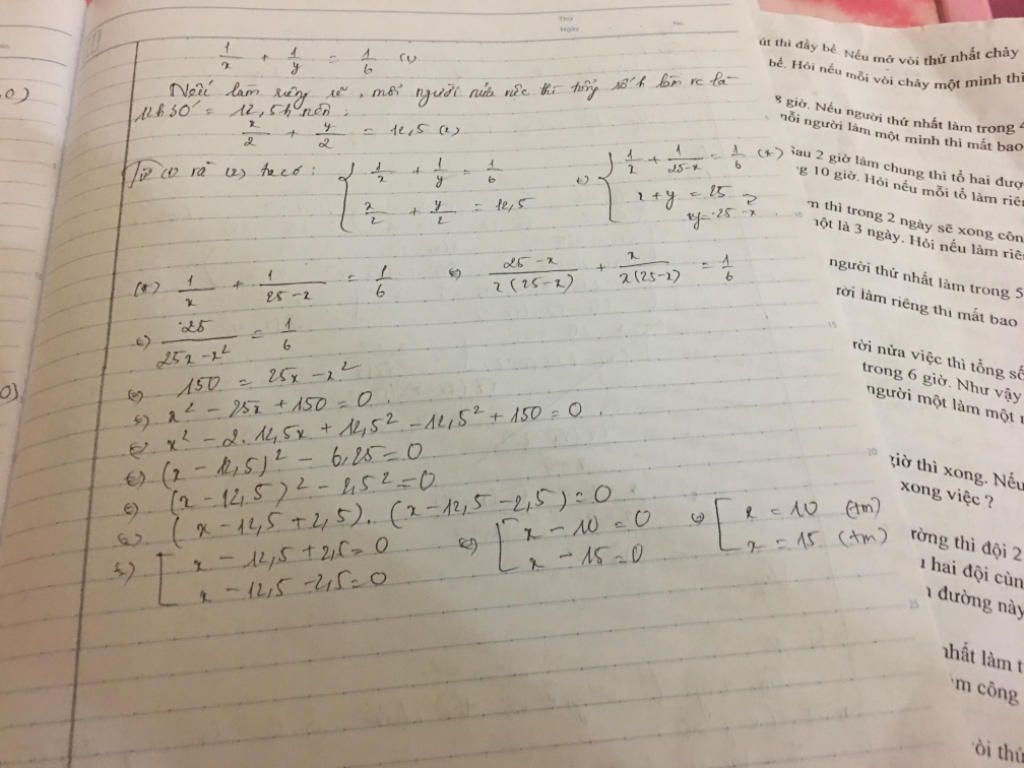 Thứ
Ngày
No.
1/x + 1/y = 1/6 (1)
Nếu làm riêng rẽ, mỗi người nửa việc thì tổng số h làm
12h30' = 12,5h nên:
x/2 + y/2 = 12,5 (2)
Từ (1) và (2) ta có: { 1/x + 1/y = 1/6 ; x/2 + y/2 = 12,5 (=) { 1/x + 1/(25-x) = 1/6 (*) ; x + y = 25 => y = 25 - x
(*) 1/x + 1/(25-x) = 1/6 (=) (25-x)/(x(25-x)) + x/(x(25-x)) = 1/6
(=) 25/(25x-x²) = 1/6
(=) 150 = 25x - x²
(=) x² - 25x + 150 = 0.
(=) x² - 2.12,5x + 12,5² - 12,5² + 150 = 0.
(=) (x - 12,5)² - 6,25 = 0
(=) (x - 12,5)² - 2,5² = 0
(=) (x - 12,5 + 2,5).(x - 12,5 - 2,5) = 0
(=) [ x - 12,5 + 2,5 = 0 ; x - 12,5 - 2,5 = 0 (=) [ x - 10 = 0 ; x - 15 = 0 (=) [ x = 10 (tm) ; x = 15 (tm)
út thì đầy bể. Nếu mở vòi thứ nhất chảy
bể. Hỏi nếu mỗi vòi chảy một mình thì
8 giờ. Nếu người thứ nhất làm trong 4
mỗi người làm một mình thì mất bao
Sau 2 giờ làm chung thì tổ hai đượ
g 10 giờ. Hỏi nếu mỗi tổ làm riê
m thì trong 2 ngày sẽ xong côn
một là 3 ngày. Hỏi nếu làm riê
người thứ nhất làm trong 5
rời làm riêng thì mất bao
15
rời nửa việc thì tổng số
trong 6 giờ. Như vậy
người một làm một
20
giờ thì xong. Nếu
xong việc ?
rờng thì đội 2
hai đội cùn
đường này
25
nhất làm t
m công
òi thứ